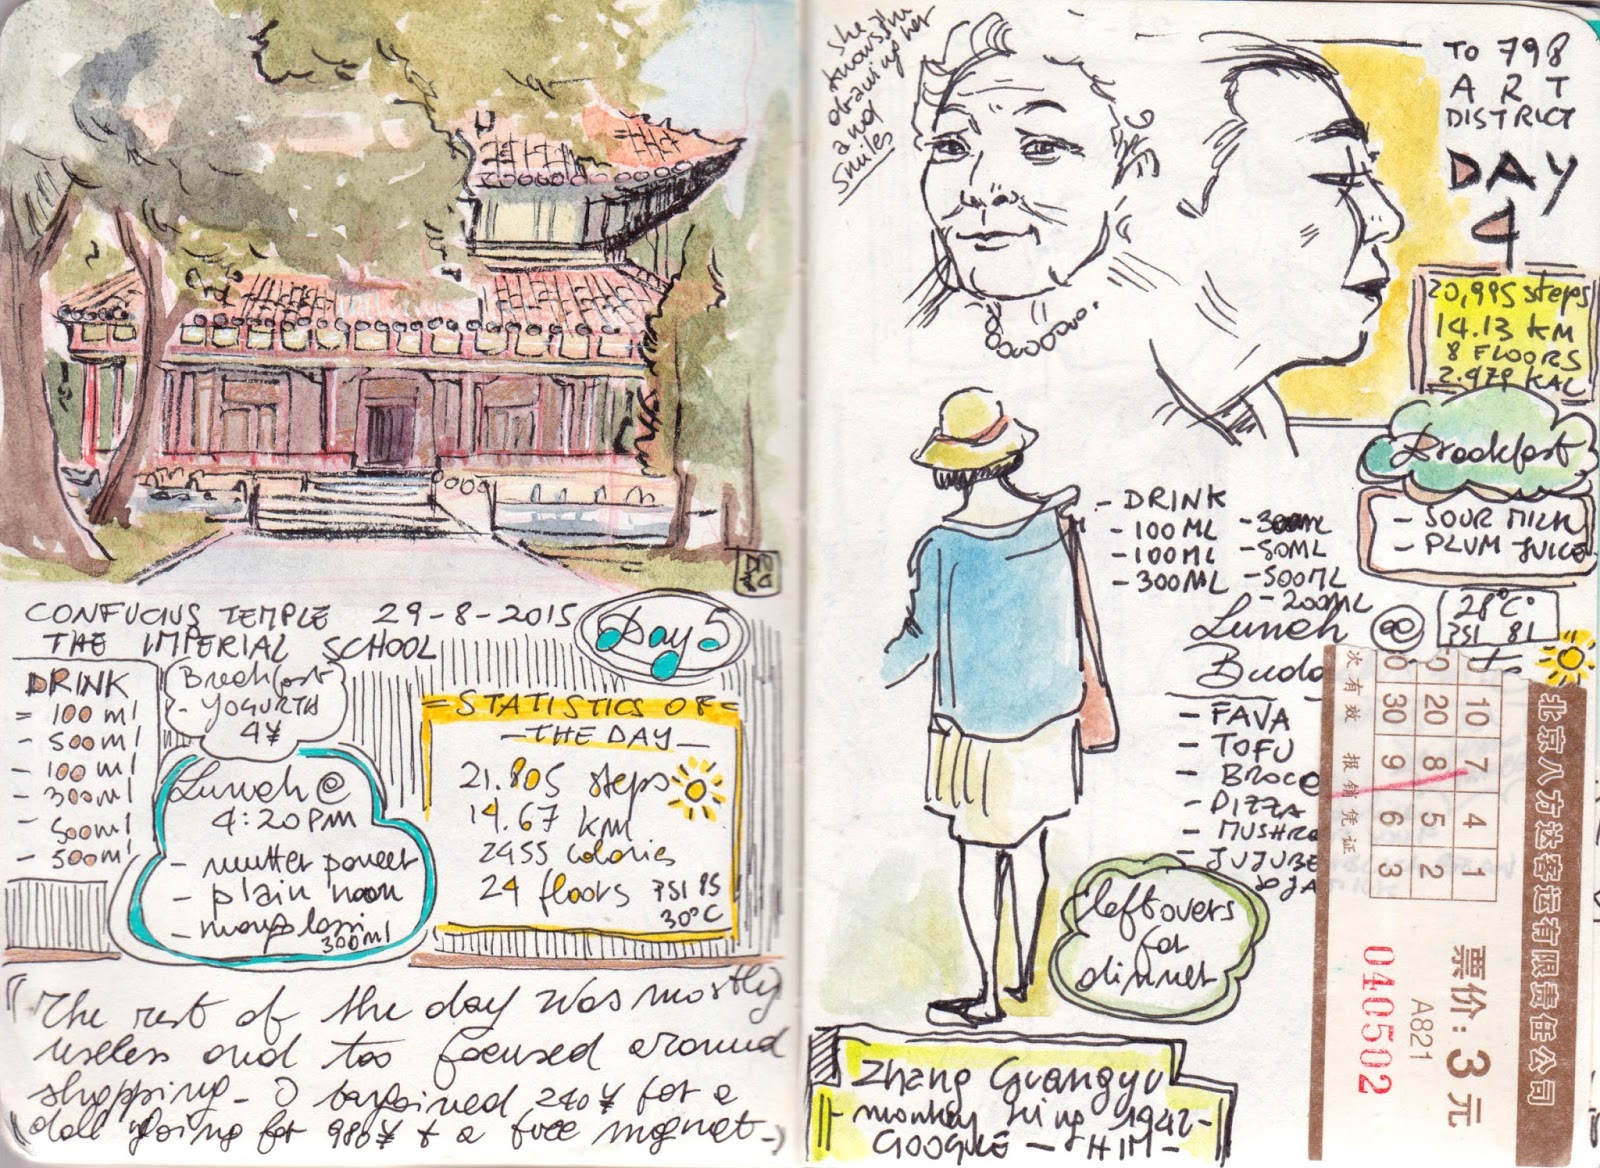 CONFUCIUS TEMPLE 29-8-2015
THE IMPERIAL SCHOOL
Day 5
DRINK
= 100 ml
- 500ml
- 100 ml
- 300ml
500ml
- 500ml
Breakfast
- YOGURTH
4¥
Lunch @
4:20PM
- mutter paneer
- plain naan
- lassi
300ml
= STATISTICS OF =
- THE DAY -
21.805 steps
14.67 km
2455 calories
24 floors PSI 85
30°C
(The rest of the day was mostly
useless and too focused around
shopping - I bargained 240¥ for a
doll going for 980¥ + a free magnet -)
she
knows I'm
drawing her
and
smiles
TO 798
ART
DISTRICT
DAY
4
20,995 steps
14.13 KM
8 FLOORS
2.479 KAL
Breakfast
- SOUR MILK
- PLUM JUICE
- DRINK
- 100ML - 300ML
- 100ML - 50ML
- 300ML - 500ML
- 200ML
28°C
PSI 81
Lunch @
- FAVA
- TOFU
- BROCO
- PIZZA
- MUSHRO
- JUJUBE
leftovers
for
dinner
Zhang Guangyu
- monkey king 1942 -
GOOGLE - HIM -
北京八方达客运有限责任公司
票价：3元
A821
040502
次有效 报销凭证
30 20 10
9 8 7
6 5 4
3 2 1